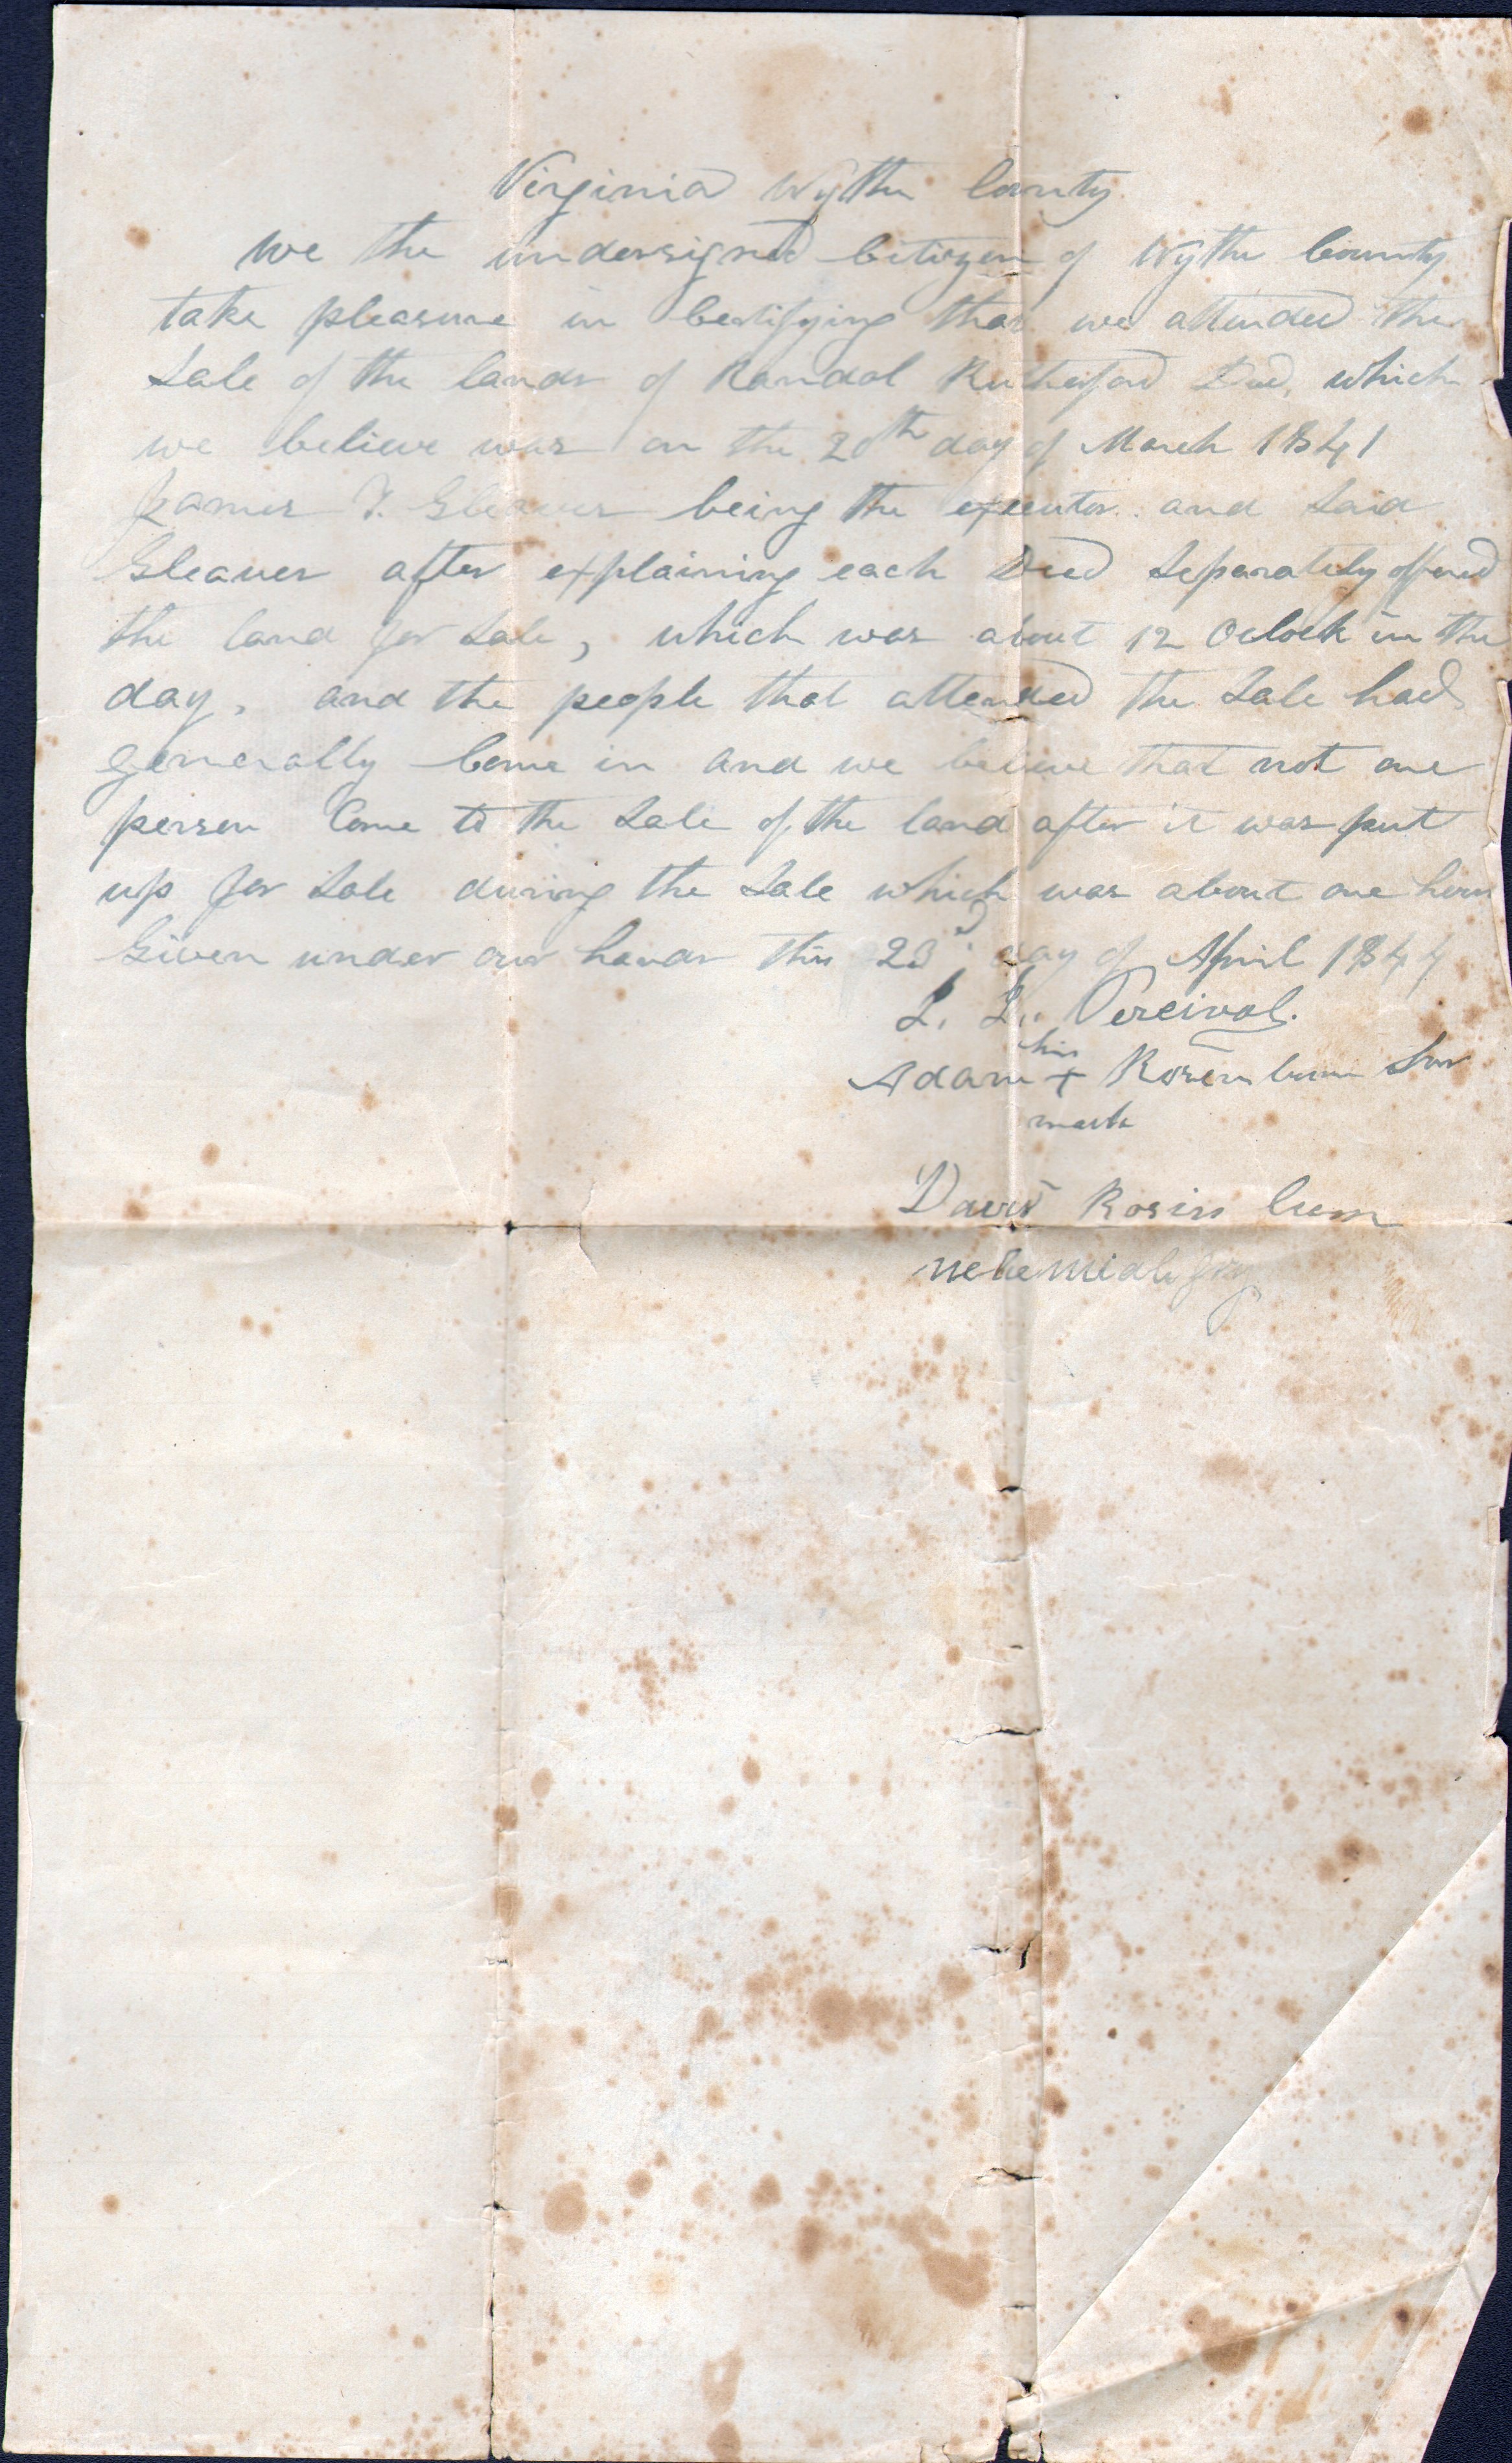 Virginia Wythe County
We the undersigned Citizen of Wythe County
take pleasure in Certifying that we attended the
Sale of the lands of Randol Rutherford Decd, which
we believe was on the 20th day of March 1841
James T. Gleaves being the executor and Said
Gleaves after explaining each Deed Separately offered
the land for Sale, which was about 12 Oclock in the
day, and the people that attended the Sale had
generally Come in and we believe that not one
person Come to the Sale of the land after it was put
up for Sale during the Sale which was about one hour
Given under our hands this 23d day of April 1844
L. L. Percival.
his
Adam + Rosenbum Snr
mark
David Rosin bum
nehemiah